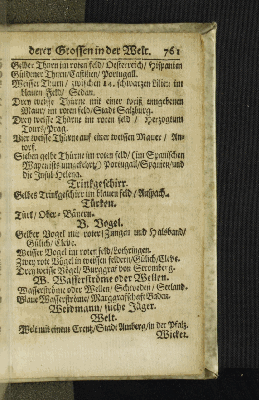 derer Grossen in der Welt. 761
Gelber Thurn im roten feld/ Oesterreich/ Hispanien
Güldener Thurn/ Castilien/ Portugall.
Weisser Thurn/ zwischen schwarzen Lilien im
blauen Feld/ Sedan.
Drey weisse Thürne mit einer weiß umgebenen
Maur/ im roten feld/ Stadt Salzburg.
Drey weisse Thürne im roten feld / Herzogtum
Tours/ Prag.
Vier weisse Thürne auf einer weissen Mauer / An-
torf.
Sieben gelbe Thürne im roten feld/ (im Spanischen
umgekehrt) Portugall/ Spanien/ und
die Insul Helena.
Trinkgeschirr.
Gelbes Trinkgeschirr im blauen feld / Anspach.
Türken.
Türk/ Ober-Bäyern.
V. Vogel.
Gelber Vogel mit roter Zungen und Halsband/
Gülich/ Cleve.
Weisser Vogel im roter feld/ Lothringen.
Zwey rote Vögel in weissen feldern/ Gülich/ Cleve.
Drey weisse Vögel/ Burggraf von Stromberg.
W. Wasserströme oder Wellen.
Wasserströme oder Wellen/ Schweden / Seeland.
Blaue Wasserströme/ Marggrafschaft Baden.
Weidmann/ suche Jäger.
Welt.
Welt mit einem Creutz/ Stadt Amberg/ in der Pfalz.
Wicket.